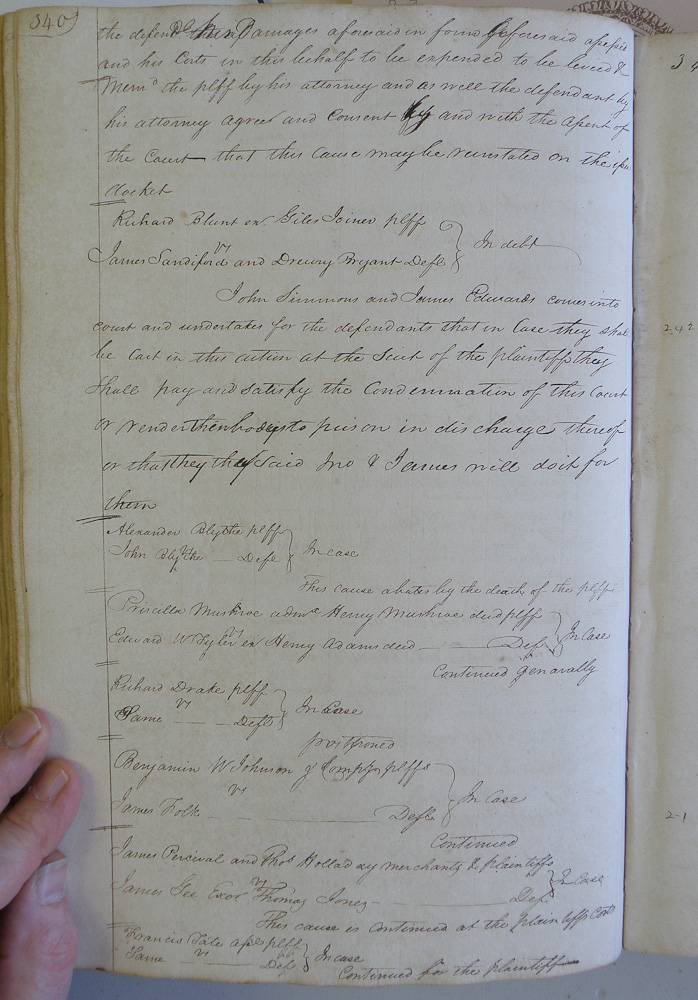 340
the defend^t his Damages aforesaid in form aforesaid assessed
and his Costs in this behalf to be expended to be levied &
Mem^o the plff by his attorney and as well the defendant by
his attorney agree and Consent and with the assent of
the Court that this Cause may be reinstated on the issu
docket
Richard Blunt ex^r Giles Joiner plff
vs In debt
James Sandiford and Drewry Bryant Defts
John Simmons and James Edwards comes into
court and undertakes for the defendants that in Case they shall
be Cast in this action at the Suit of the plaintiff they
shall pay and satisfy the Condemnation of this Court
or render their bodys to prison in discharge thereof
or that they the said Jno & James will do it for
them
Alexander Blythe plff
vs In case
John Blythe Deft
This cause abates by the death of the plff
Priscilla Mushroe adm^x Henry Mushroe decd plff
vs In Case
Edward W Tyler ex^r Henry Adams decd Deft
Continued generally
Richard Drake plff
vs In Case
Same Deft
postponed
Benjamin W Johnson & Comp^y plffs
vs In Case
James Folk Deft
Continued
James Percival and Tho^s Holladay merchants & plaintiffs
vs In Case
James Gee Exor Thomas Jones Def^t
This cause is continued at the plaintiffs Costs
Francis Tate ass^ee plff
vs In case
Same Def^t
Continued for the plaintiff
34
242
2-1